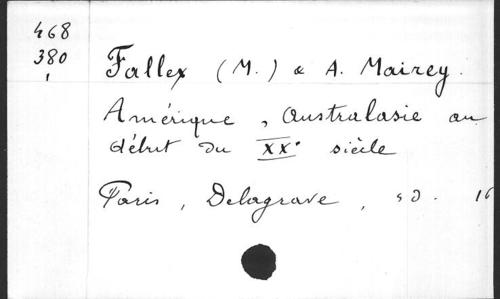 468
380
1
Fallex (M.) & A. Mairey.
Amérique, Australasie au
début du XXe siècle
Paris, Delagrave, sd. 16